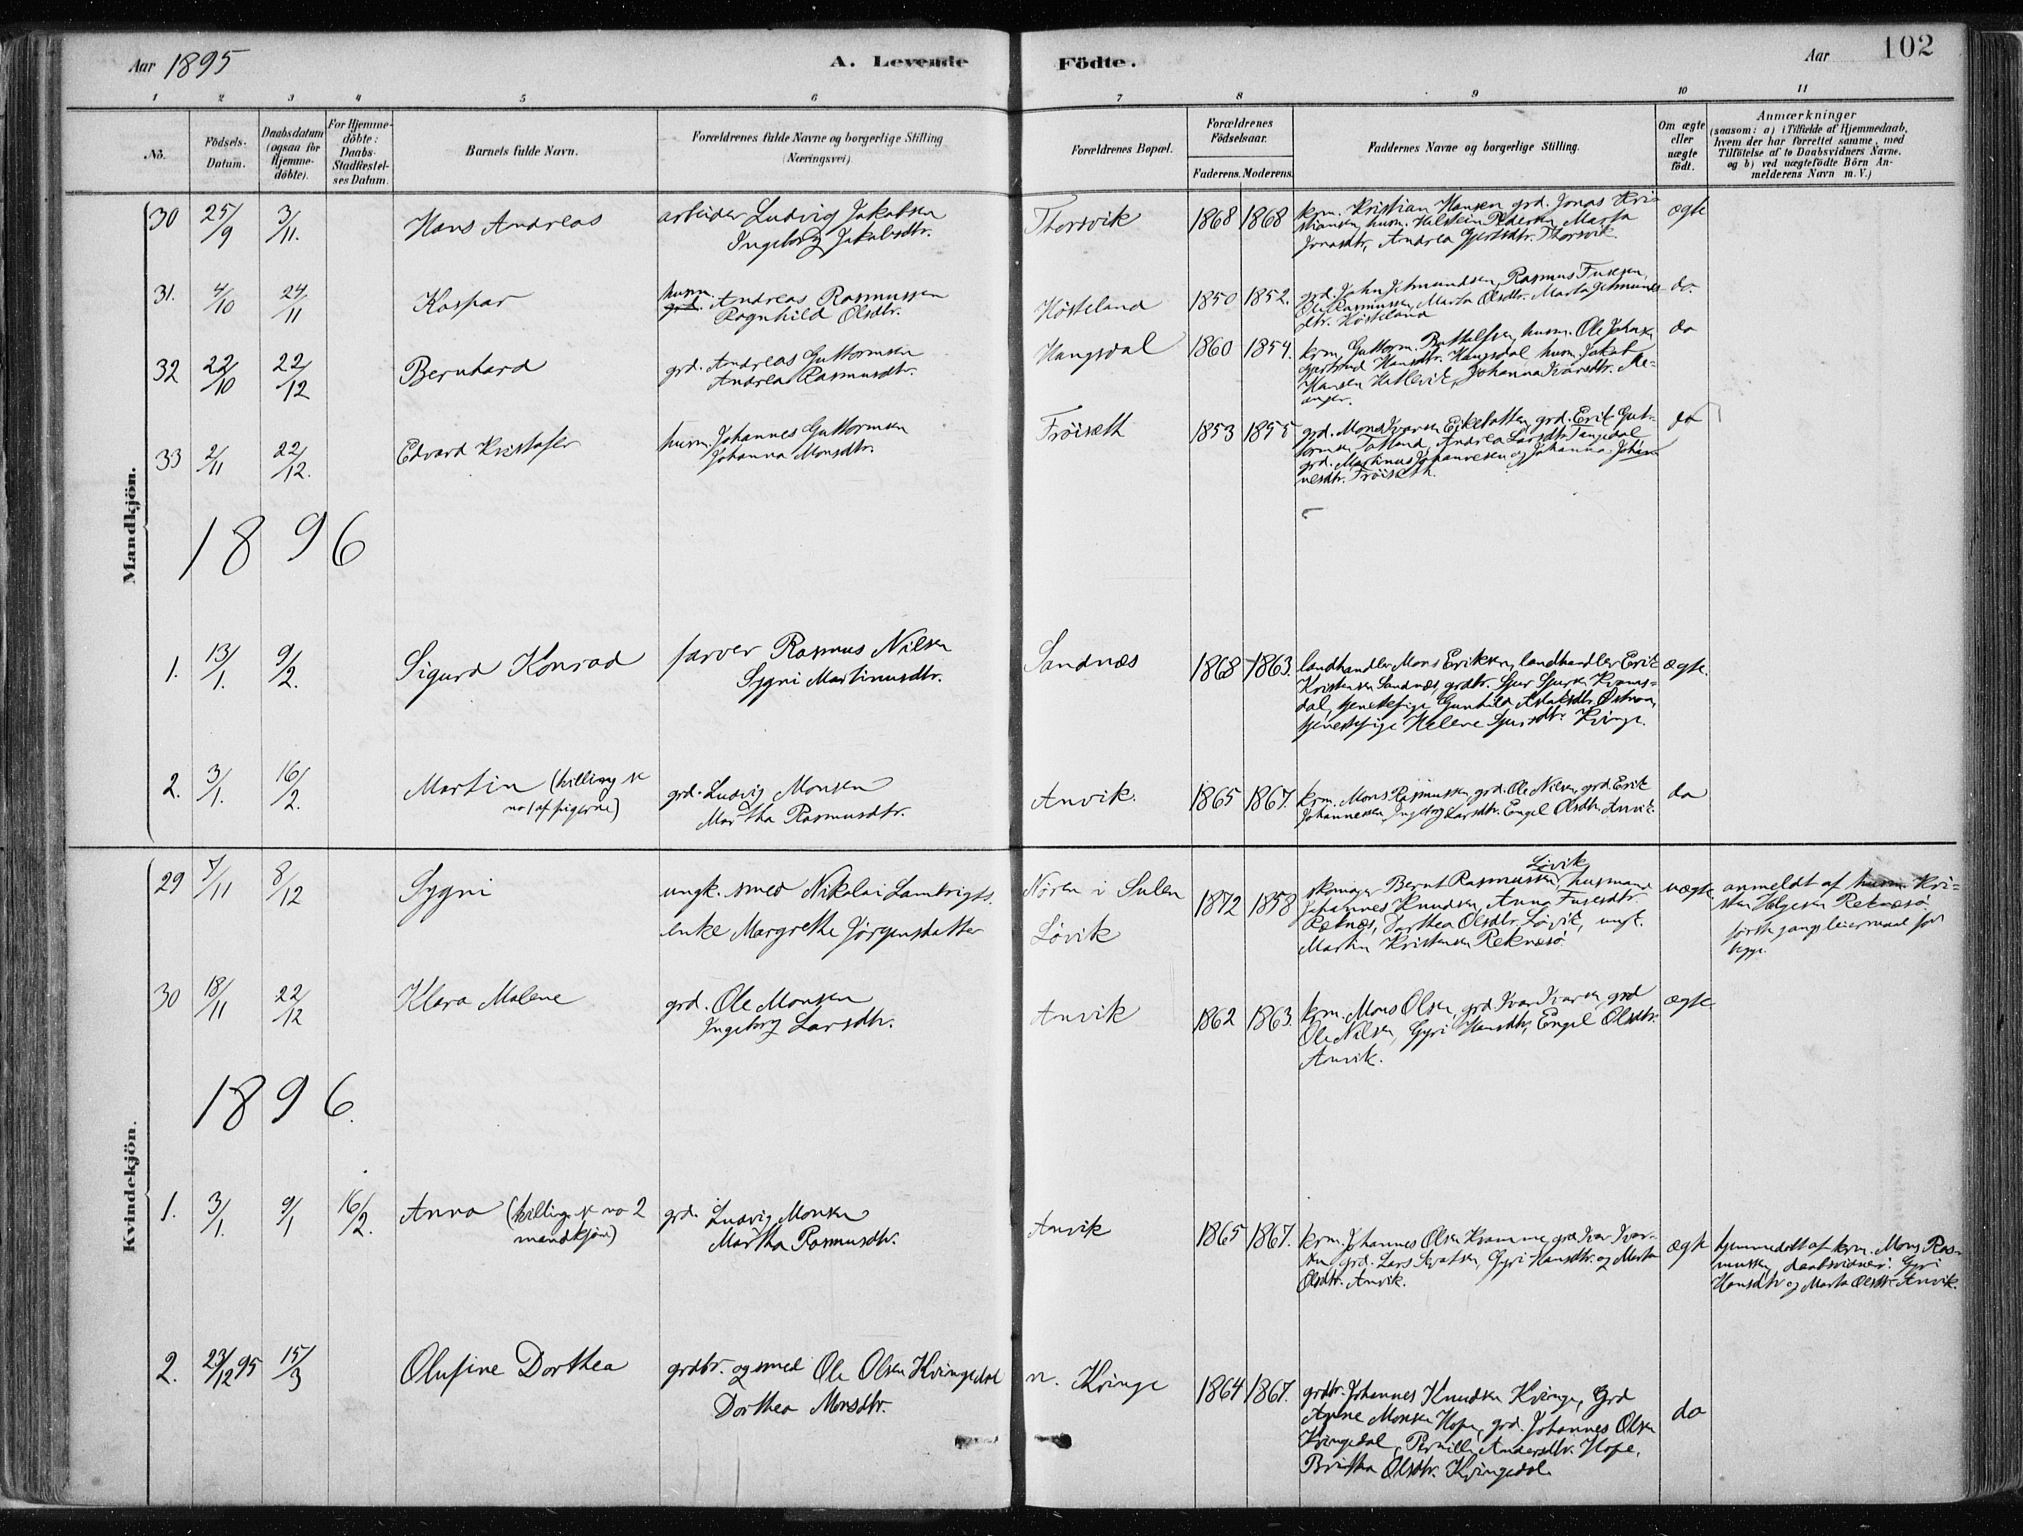 Aar 1895
A. Levende
Födte.
Aar
102
1 2 3 4 5 6
7 8 9 10 11
No.
Födsels-
Datum.
Daabsdatum
(ogsaa for
Hjemme-
döbte).
For Hjemme-
döbte:
Daabs-
Stadfæstel-
ses Datum.
Barnets fulde Navn.
Forældrenes fulde Navne og borgerlige Stilling
(Næringsvei)
Forældrenes Bopæl.
Forældrenes
Födselsaar.
Faderens. Moderens.
Faddernes Navne og borgerlige Stilling.
Om ægte
eller
uægte
födt.
Anmærkninger
(saasom: a) i Tilfælde af Hjemmedaab,
hvem der har forrettet samme, med
Tilföielse af to Daabsvidners Navne,
og b) ved uægtefödte Börn An-
melderens Navn m. V.)
Mandkjön.
30 25/9 3/11. Hans Andreas
arbeider Ludvig Jakobsen
Ingeborg Jakobsdtr.
Thorsvik 1868 1868
krm. Kristian Hansen grd. Jonas Kri-
stiansen, husm. Halstein Pedersen, Marta
Jonasdtr, Andrea Gjertsdtr. Thorsvik.
ægte
31. 4/10 24/11 Kaspar
husm.
grd. Andreas Rasmussen
Ragnhild Olsdtr.
Hösteland 1850 1852.
grd. John Jetmundsen, Rasmus Fusesen,
Ole Rasmussen, Marta Olsdtr. Marta Jetmunds-
dtr. Hösteland
do.
32 22/10 22/12 Bernhard
grd. Andreas Guttormsen
Andrea Rasmusdtr.
Haugsdal 1860 1854.
krm. Guttorm husm. Ole Johns.
Gjertrud Hansdtr. Haugsdal husm. Jakob
Hansen Hatlevik, Johanna Ivarsdtr. Me-
anger.
do
33 2/11 22/12. Edvard Kristofer
husm. Johannes Guttormsen
Johanna Monsdtr.
Fröiseth 1853 1855
grd. Mons Ivarsen Eikebotten, grd. Erik Gut-
tormsen Totland, Andrea Larsdtr. Tangedal
grd. Martinus Johannesen og Johanna Johan-
nesdtr. Fröiseth.
do
1896
1. 13/1. 9/2. Sigurd Konrad
farver Rasmus Nilsen
Sygni Martinusdtr.
Sandnæs 1868 1863.
landhandler Mons Eriksen, landhandler Erik
Kristensen Sandnæs, grdbr. Sjur Sjursen Kvams-
dal, tjenestepige Gunhild Aslaksdtr. Østrem,
tjenestepige Helene Sjursdtr. Kvinge.
ægte.
2. 3/1. 16/2. Martin (tvilling se
no 1 af pigerne)
grd. Ludvig Monsen
Martha Rasmusdtr.
Anvik. 1865 1867.
krm. Mons Rasmussen, grd. Ole Nilsen, grd. Erik
Johannessen, Ingeborg Larsdtr. Engel Olsdtr. Anvik.
do
Kvindekjön.
29 7/11 8/12 Sygni
ungk. smed Nikolai Lambrigts.
enke Margrethe Jörgensdatter
Nören i Sulen
Lövik
1872 1858
Lövik
skomager Bernt Rasmussen, husmand
Johannes Knudsen, Anna Fusesdtr.
Reknæs, Dorthea Olsdtr. Lövik, ungk.
Martin Kristensen Reknesö
uægte.
anmeldt af husm. Kri-
sten Helgesen Reknesö.
første gangs leiermaal for
begge.
30 18/11 22/12 Klara Malene
grd. Ole Monsen
Ingeborg Larsdtr.
Anvik 1862 1863.
krm. Mons Olsen, grd. Ivar Ivarsen, grd
Ole Nilsen, Gyri Hansdtr, Engel Olsdtr.
Anvik.
ægte.
1896.
1. 3/1. 9/1 16/2. Anna (tvilling se no 2
mandkjön)
grd. Ludvig Monsen
Martha Rasmusdtr.
Anvik 1865 1867.
krm. Johannes Olsen Kramme, grd. Ivar Ivar-
sen, grd. Lars Gyri Hansdtr. og Marta
Olsdtr. Anvik.
ægte
hjemmedöbt af krm. Mons Ras-
mussen, daabsvidner: Gyri
Hansdtr og Marta Olsdtr. Anvik.
2. 23/12 95 15/3 Olufine Dorthea
grdbr. og smed Ole Olsen Kvingedal
Dorthea Monsdtr.
n. Kvinge 1864 1867.
grdbr. Johannes Knudsen Kvinge, Grd
Arne Monsen Hope, grd. Johannes Olsen
Kvingedal, Pernille Andersdtr. Hope,
Britha Olsdtr. Kvingedal.
do